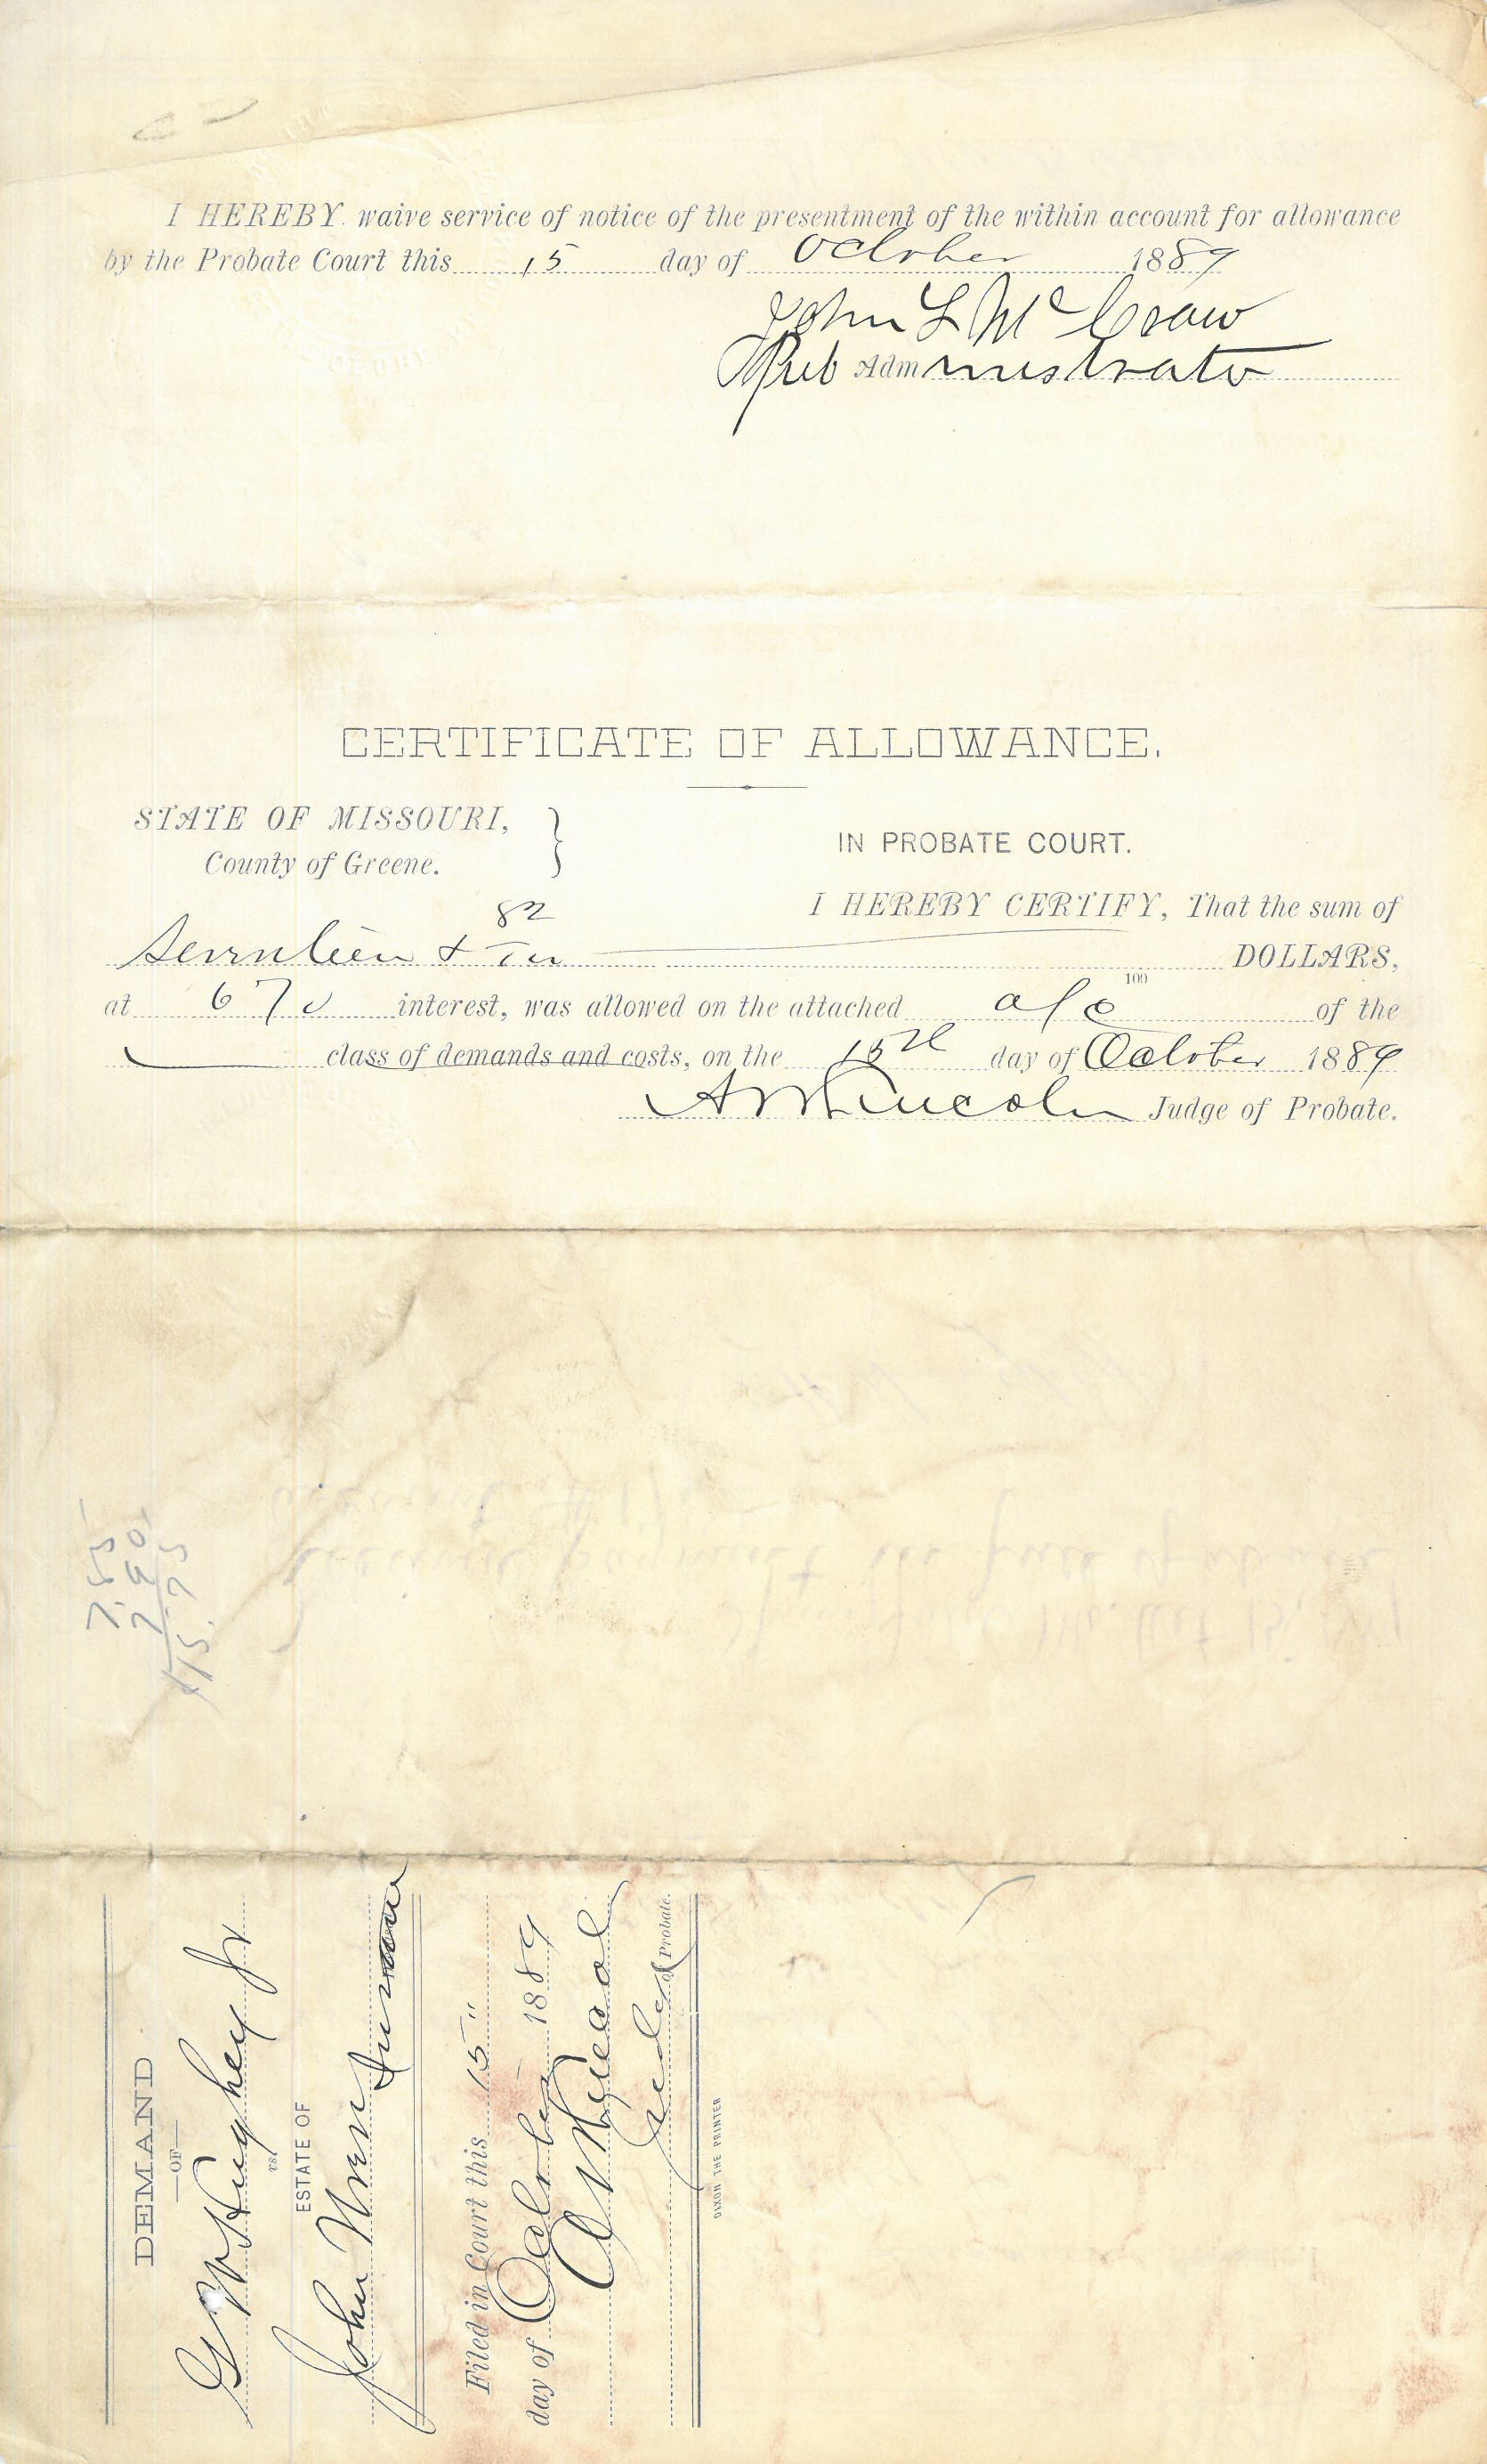 I HEREBY waive service of notice of the presentment of the within account for allowance
by the Probate Court this 15 day of October 1889
John L McCraw
Pub Administrator
CERTIFICATE OF ALLOWANCE.
STATE OF MISSOURI,
County of Greene.
IN PROBATE COURT.
I HEREBY CERTIFY, That the sum of
Seventeen & 82 DOLLARS,
100
at 6 % interest, was allowed on the attached a/c of the
class of demands and costs, on the 15th day of October 1889
Lincoln Judge of Probate.
7.85
7.90
15.75
DEMAND
—OF—
G W Hughey Jr
vs.
ESTATE OF
John Wren
Filed in Court this 15"
day of October 1889
Lincoln
Judge of Probate.
DIXON THE PRINTER